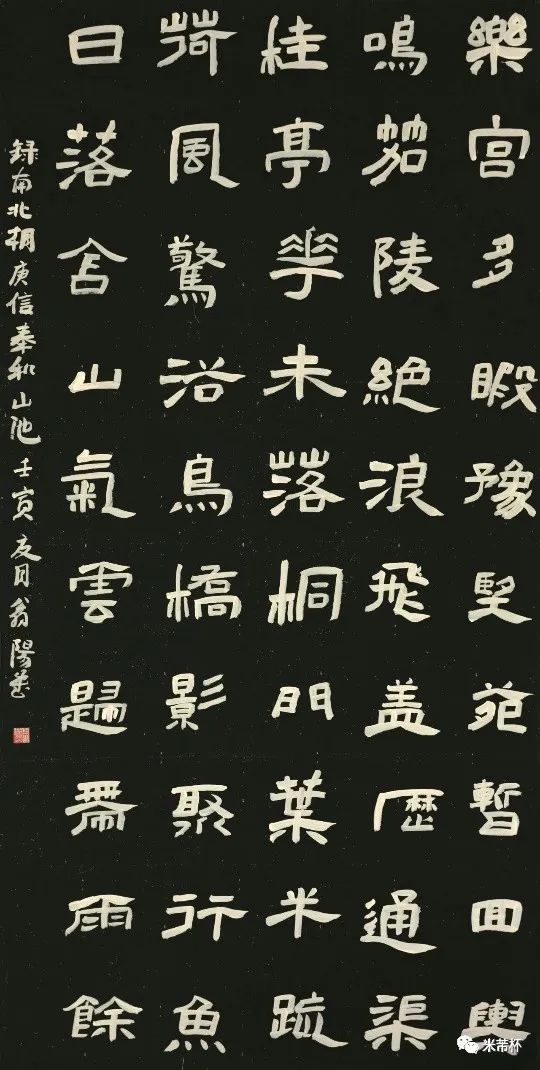 樂宮多暇豫望苑暫回輿
鳴笳陵絕浪飛盖歷通渠
桂亭華未落桐門葉半疏
荷風驚浴鳥橋影聚行魚
日落含山氣雲歸帶雨餘
錄南北朝庾信奉和山池壬寅夏月翁陽
米芾杯